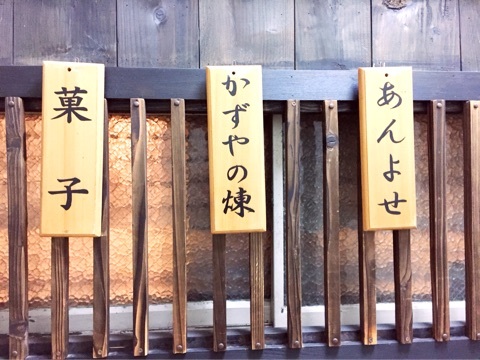 菓子
かずやの煉
あんよせ